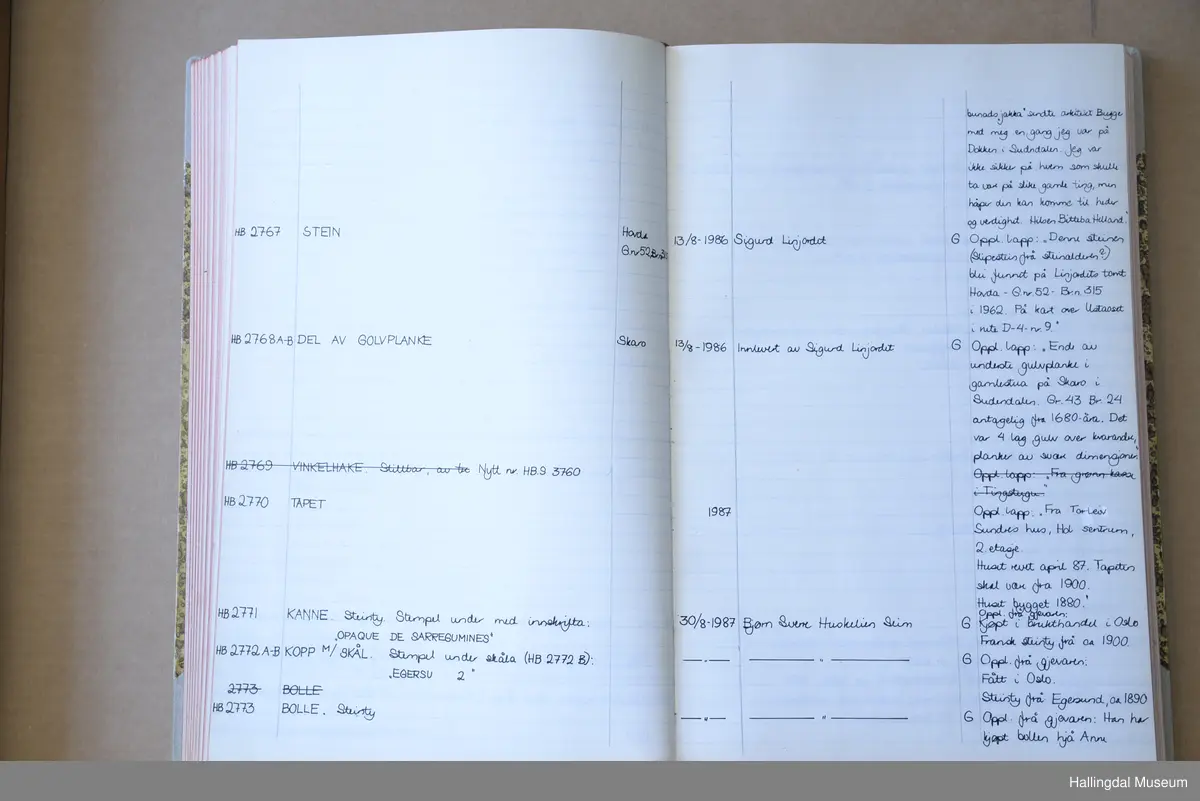 bunadsjakka" sendte arkitekt Bugge
med meg en gang jeg var på
Dokken i Sudndalen. Jeg var
ikke sikker på hvem som skulle
ta vare på slike gamle ting, men
håper den kan komme til heder
og verdighet. Hilsen Bitteba Helland."
HB 2767 STEIN Hovda 13/8-1986 Sigurd Linjordet G Oppl. lapp: „Denne steinen
G.nr 52 (Slipestein frå steinalderen?)
blei funnet på Linjordets tomt
Hovda - G.nr. 52 - Br.n. 315
i 1962. På kart over Ustaoset
i rute D-4-nr 9."
HB 2768 A-B DEL AV GOLVPLANKE Skaro 13/8-1986 Innlevert av Sigurd Linjordet G Oppl. lapp: „Ende av
underste gulvplanke i
gamlestua på Skaro i
Sudendalen. Gr. 43 Br. 24
antagelig fra 1680-åra. Det
var 4 lag gulv over hverandre,
planker av svær dimensjoner."
HB 2769 VINKELHAKE. Stillbar, av tre Nytt nr HB.S 3760 Oppl. lapp: „Fra grønn kasse
i Tingstugu"
HB 2770 TAPET 1987 Oppl. lapp: „Fra Torleiv
Sundres hus, Hol sentrum,
2. etage.
Huset revet april 87. Tapeten
skal vær fra 1900.
Huset bygget 1880."
Oppl. frå gjevaren:
HB 2771 KANNE. Steinty. Stempel under med innskrifta: 30/8-1987 Bjørn Sverre Huskelien Seim G Kjøpt i brukthandel i Oslo
„OPAQUE DE SARREGUMINES" Fransk steinty frå ca 1900.
HB 2772 A-B KOPP M/SKÅL. Stempel under skåla (HB 2772 B): —"— —"— G Oppl. frå gjevaren:
„EGERSU 2" Fått i Oslo.
2773 BOLLE Steinty frå Egersund, ca 1890
HB 2773 BOLLE. Steinty —"— —"— G Oppl. frå gjevaren: Han har
kjøpt bollen hjå Anne
Hallingdal Museum